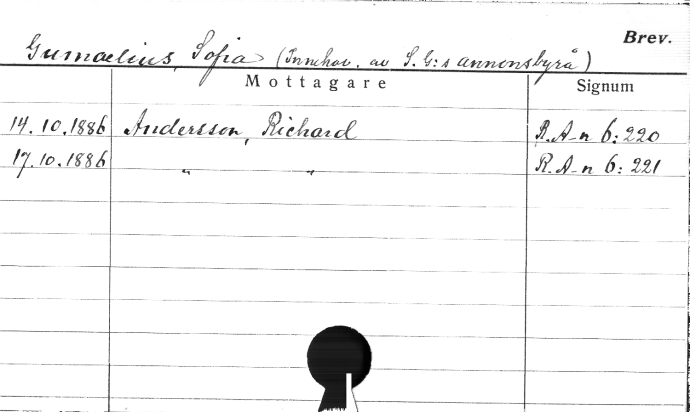 Brev.
Gumaelius, Sofia (Innehav. av S. G:s annonsbyrå)
Mottagare Signum
14.10.1886 Andersson, Richard R.A-n 6:220
17.10.1886 " " R.A-n 6:221